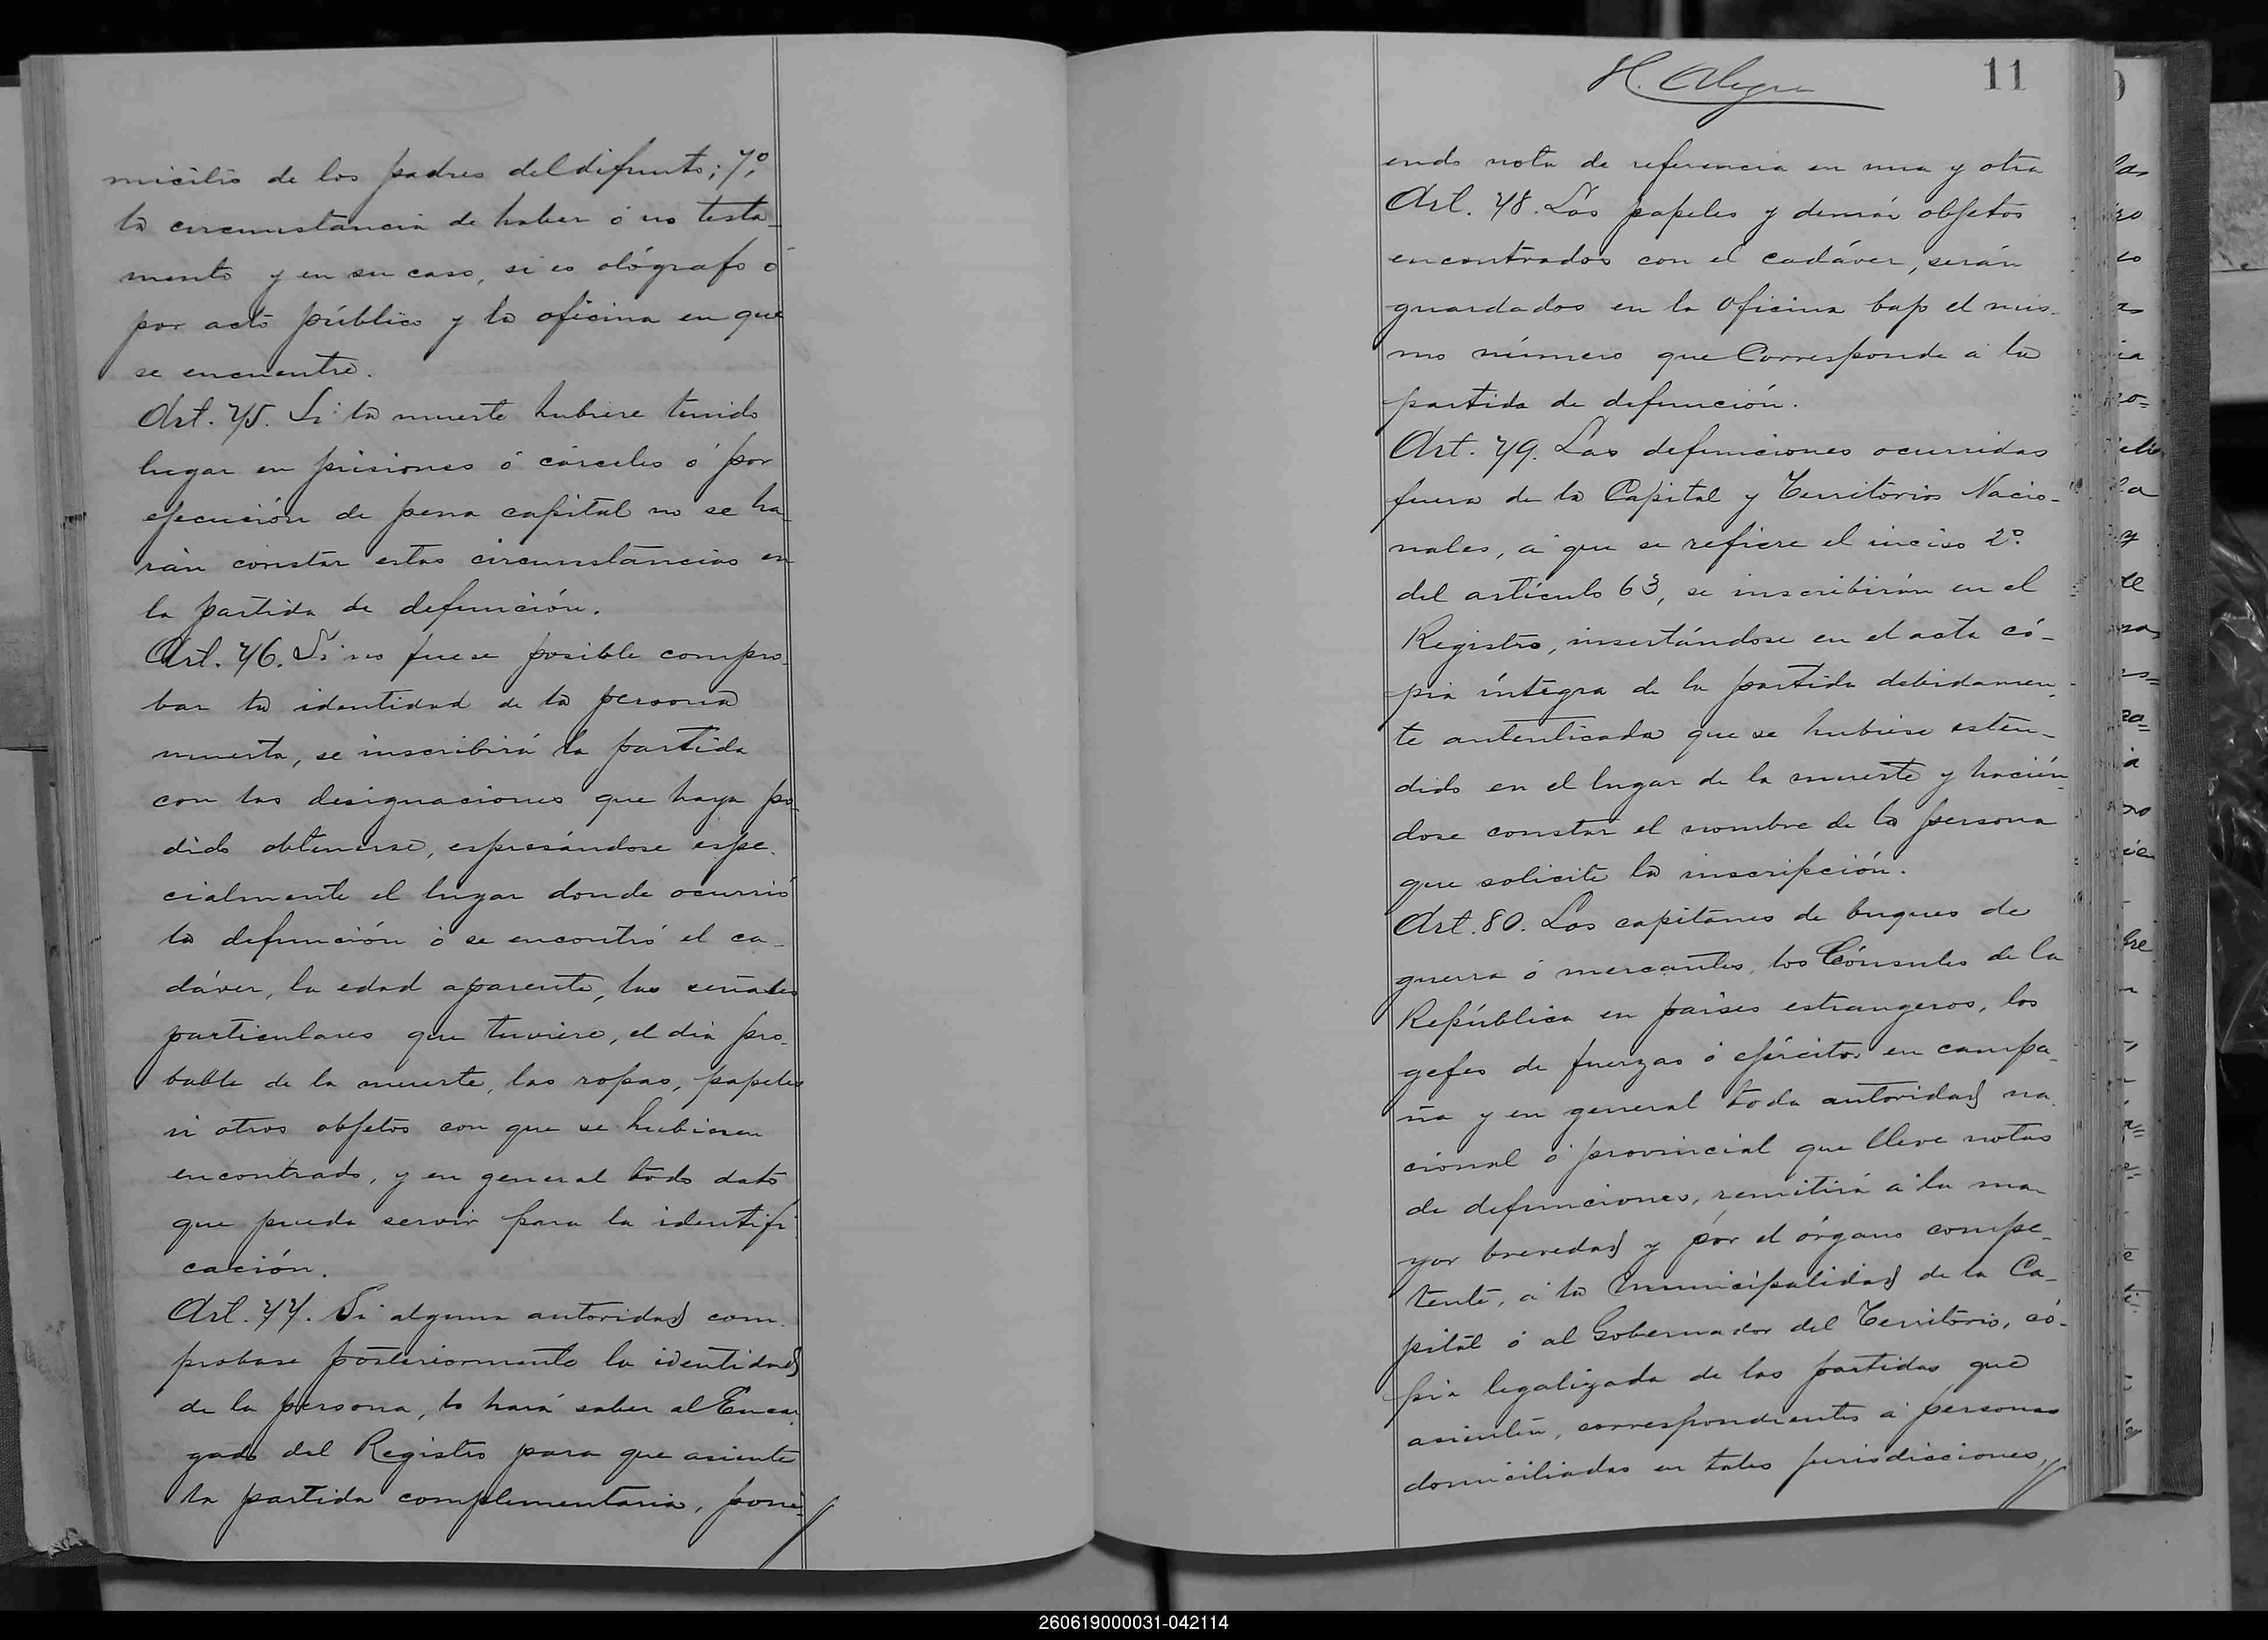 micilio de los padres del difunto; 7º,
la circunstancia de haber ó no testa-
mento y en su caso, si es ológrafo ó
por acto público y la oficina en que
se encuentre.
Art. 75. Si la muerte hubiere tenido
lugar en prisiones ó cárceles ó por
ejecución de pena capital no se ha-
rán constar estas circunstancias en
la partida de defunción.
Art. 76. Si no fuese posible compro-
bar la identidad de la persona
muerta, se inscribirá la partida
con las designaciones que haya po-
dido obtenerse, espresándose espe-
cialmente el lugar donde ocurrió
la defunción ó se encontró el ca-
dáver, la edad aparente, las señales
particulares que tuviere, el dia pro-
bable de la muerte, las ropas, papeles
ú otros objetos con que se hubiesen
encontrado, y en general todo dato
que pueda servir para la identifi-
cación.
Art. 77. Si alguna autoridad com-
probase posteriormente la identidad
de la persona, lo hará saber al Encar-
gado del Registro para que asiente
la partida complementaria, poni-
H. Alegre
11
endo nota de referencia en una y otra
Art. 78. Los papeles y demás objetos
encontrados con el cadáver, serán
guardados en la Oficina bajo el mis-
mo número que Corresponde á la
partida de defunción.
Art. 79. Las defunciones ocurridas
fuera de la Capital y Territorios Nacio-
nales, á que se refiere el inciso 2º.
del artículo 63, se inscribirán en el
Registro, insertándose en el acta có-
pia íntegra de la partida debidamen-
te autenticada que se hubiese esten-
dido en el lugar de la muerte y hacién-
dose constar el nombre de la persona
que solicite la inscripción.
Art. 80. Los capitanes de buques de
guerra ó mercantes, los Cónsules de la
República en paises estrangeros, los
gefes de fuerzas ó ejércitos en campa-
ña y en general toda autoridad na-
cional ó provincial que lleve notas
de defunciones, remitirá á la ma-
yor brevedad y por el órgano compe-
tente, á la Municipalidad de la Ca-
pital ó al Gobernador del Territorio, có-
pia legalizada de las partidas que
asienten, correspondientes á personas
domiciliadas en tales jurisdicciones,
260619000031-042114